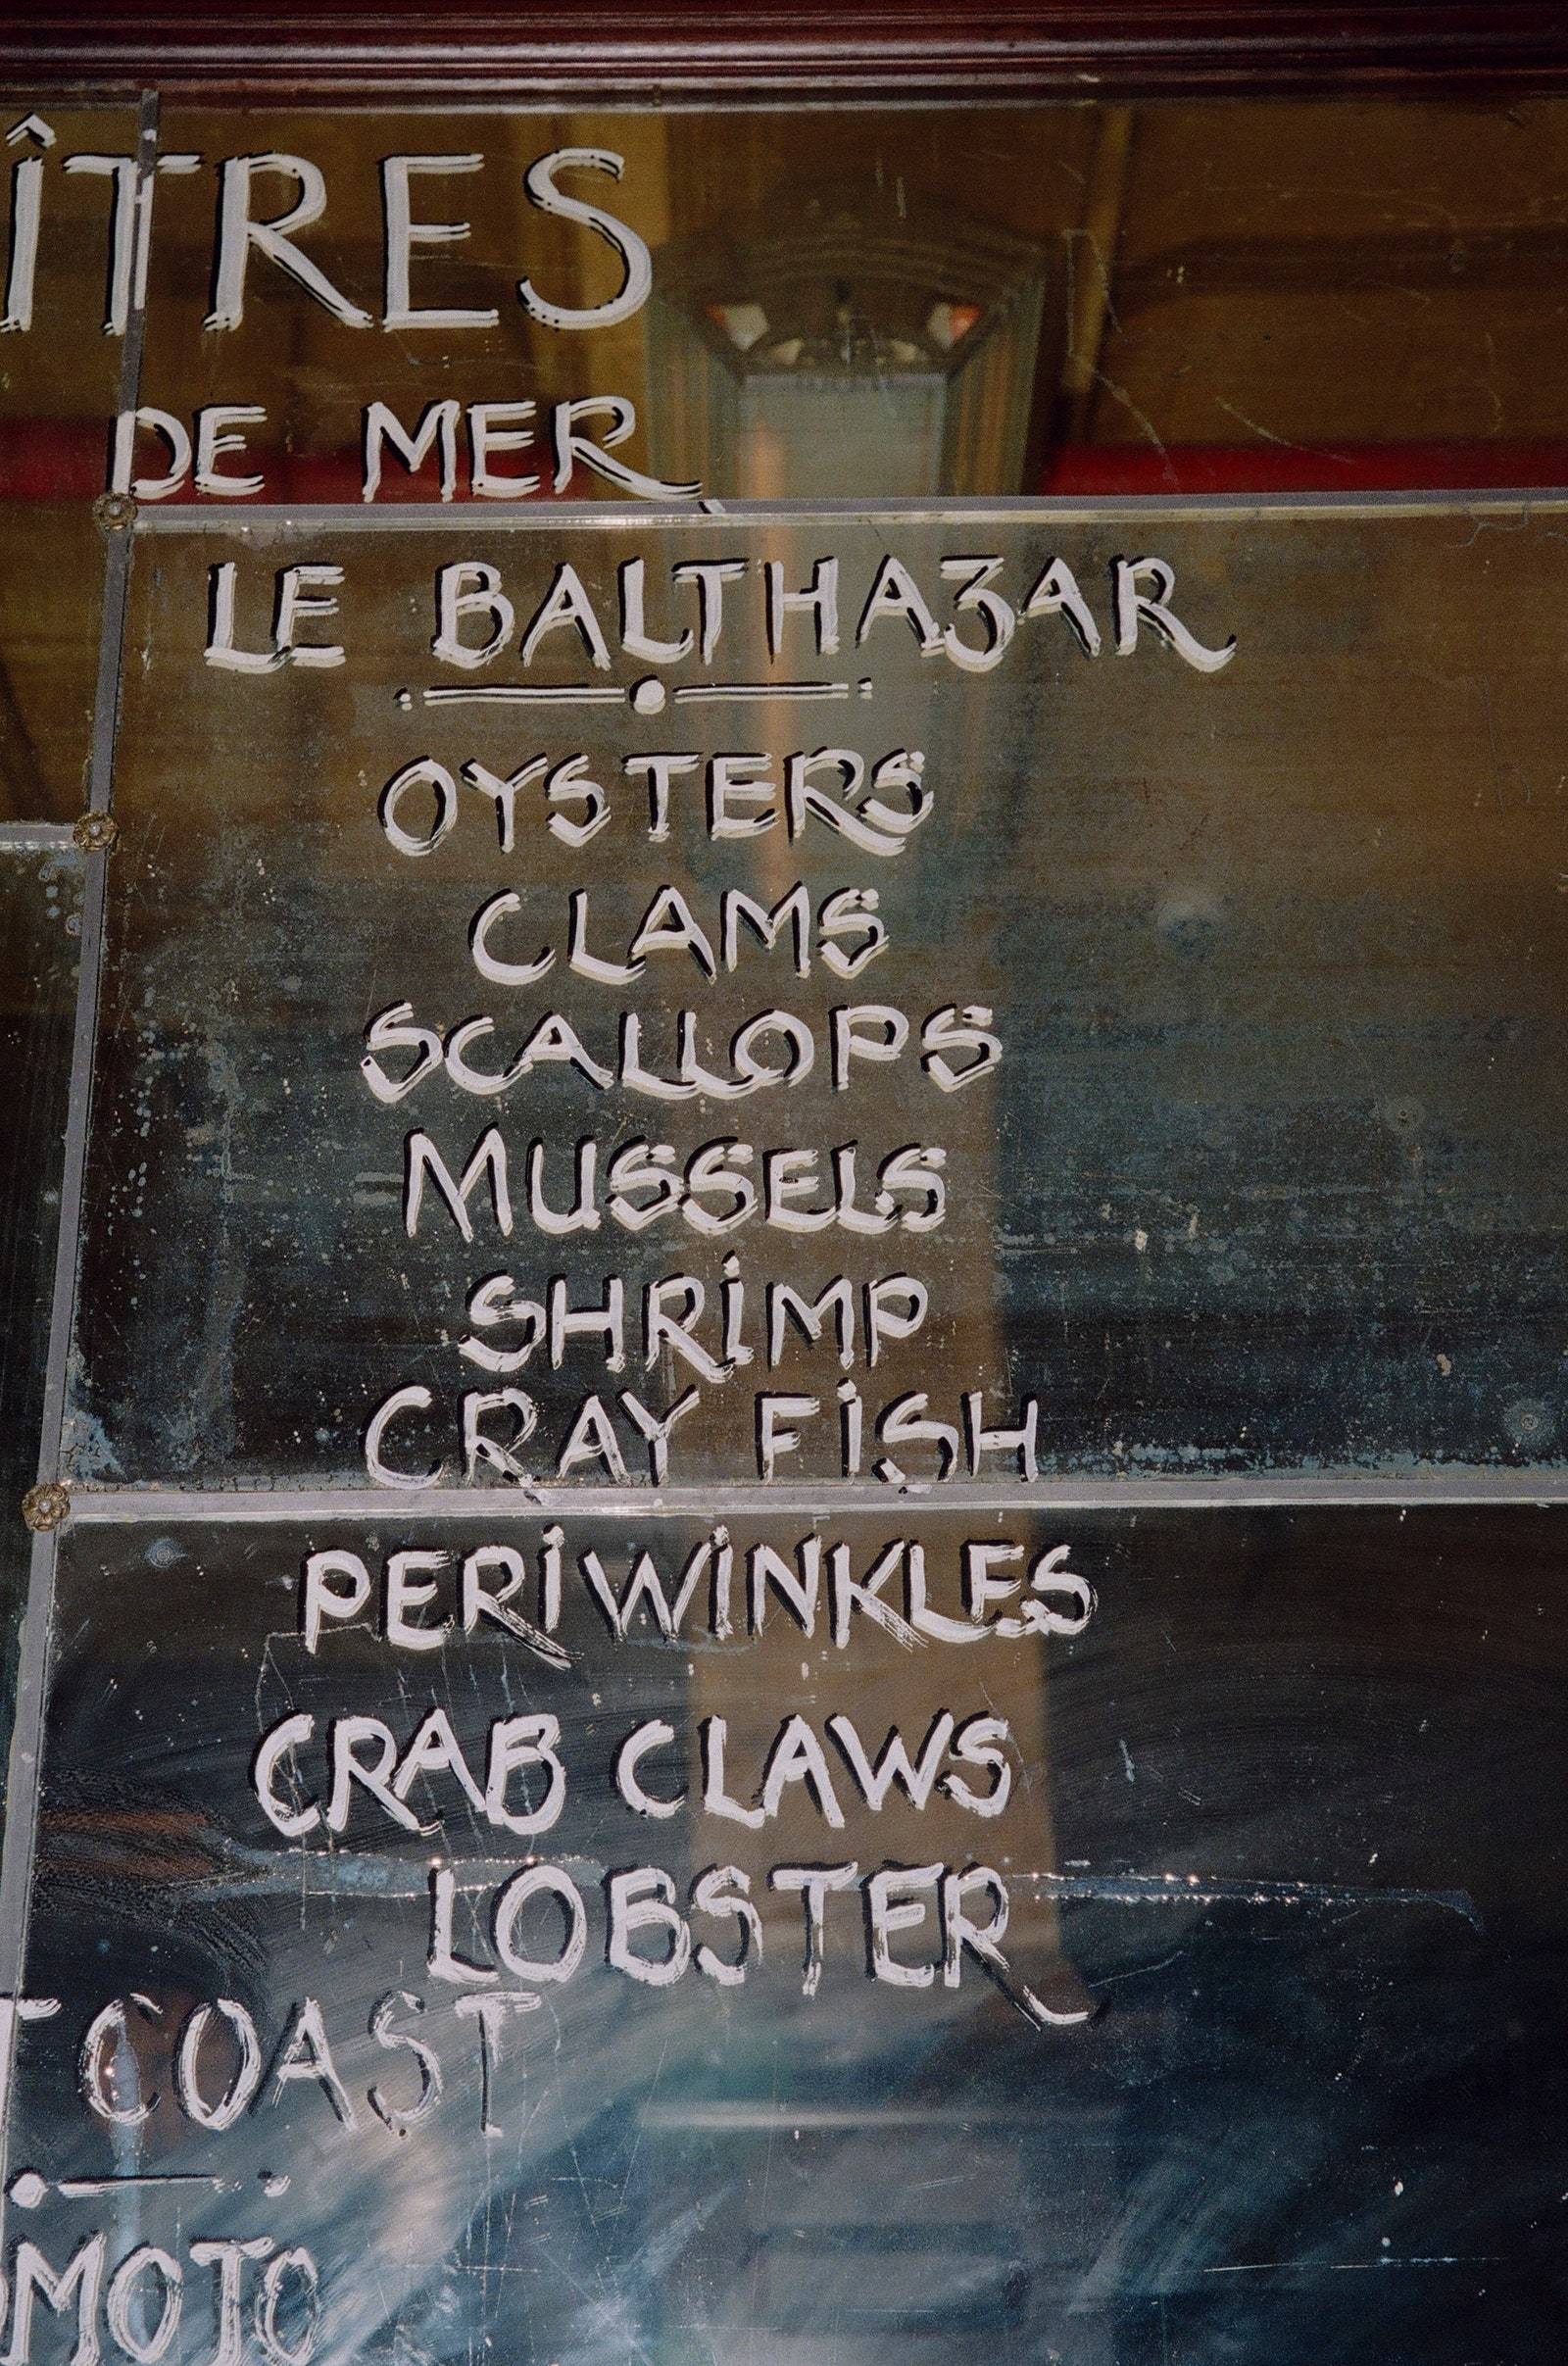 ÎTRES
DE MER
LE BALTHAZAR
OYSTERS
CLAMS
SCALLOPS
MUSSELS
SHRIMP
CRAY FISH
PERIWINKLES
CRAB CLAWS
LOBSTER
T COAST
MOTO